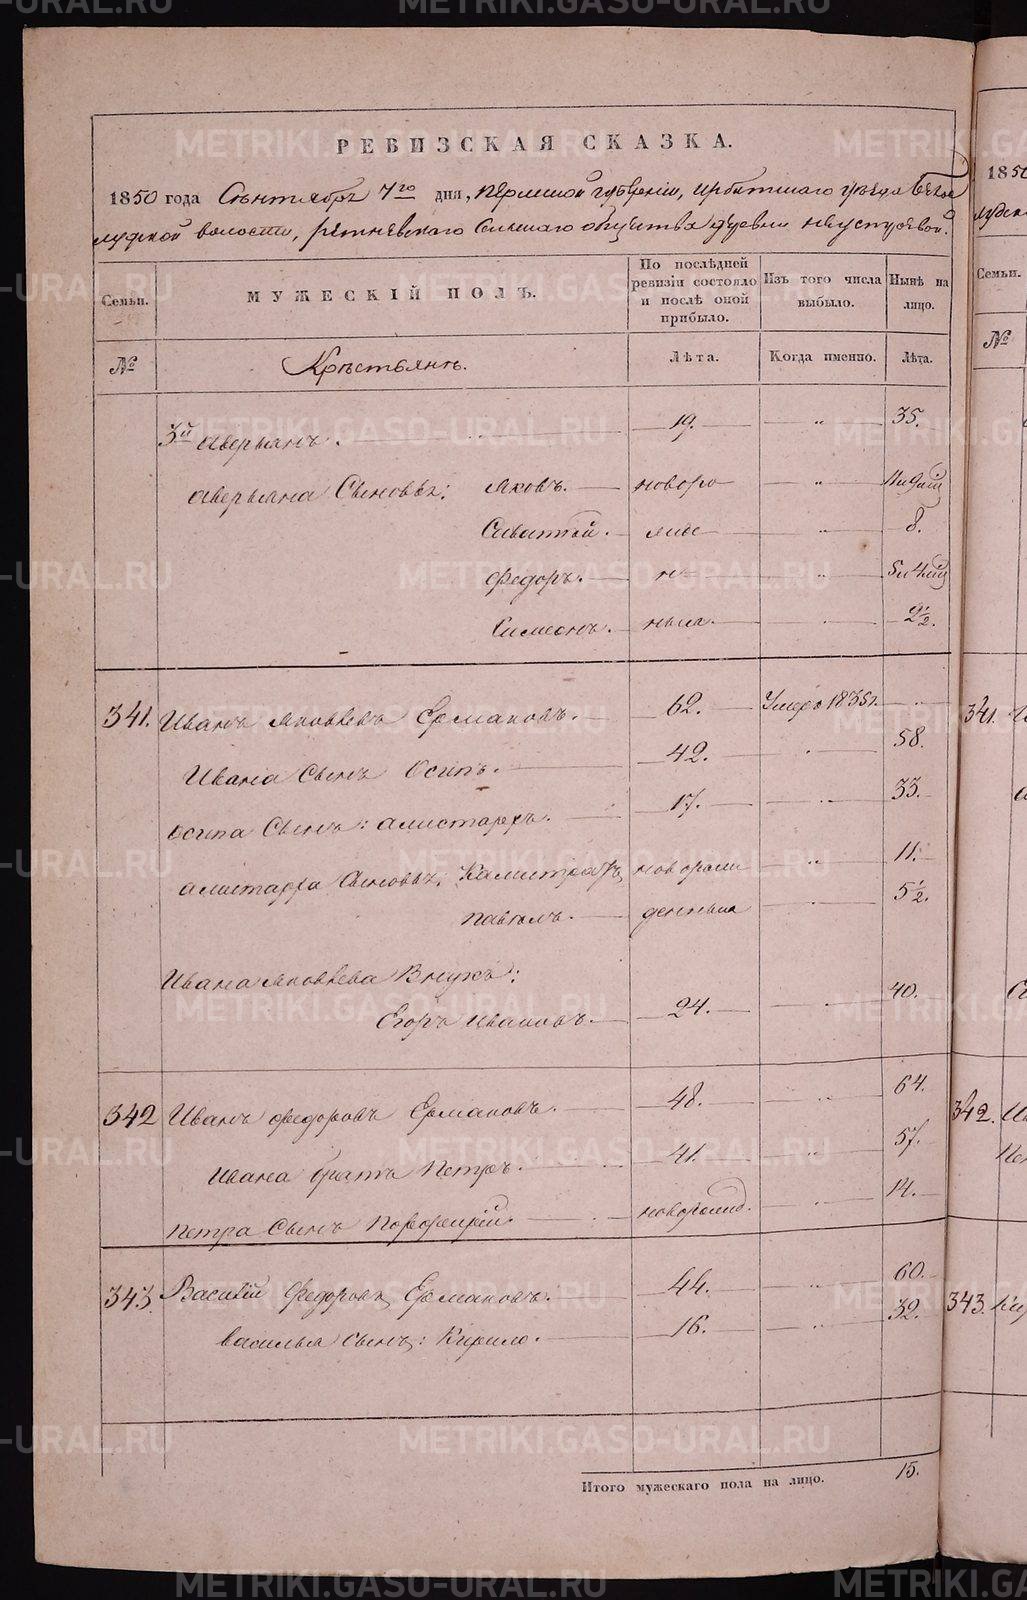 METRIKI.GASO-URAL.RU
РЕВИЗСКАЯ СКАЗКА.
1850 года Сентября 7го дня, Пермской губернии, Ирбитскаго уезда Бело
лудской волости, Ретневскаго Сельскаго общества деревни Неустроевой.
Семьи.
МУЖЕСКІЙ ПОЛЪ.
По послѣдней ревизіи состояло и послѣ оной прибыло.
Изъ того числа выбыло.
Нынѣ на лицо.
№ Крестьяне. Лѣта. Когда именно. Лѣта.
3й Аверьянъ. 19. „ 35.
Аверьяна Сыновья: Яковъ. новоро „
Саватей. „ 8.
Федоръ. „
Симеонъ. „ 2½.
341. Иванъ Яковлевъ Ермаковъ. 62. Умеръ 1835г. „
Ивана Сынъ Осипъ. 42. „ 58.
Осипа Сынъ: Алистархъ. 17. „ 33.
Алистарха Сыновья: Калистратъ новорож „ 11.
Павелъ. денныя „ 5½.
Ивана Яковлева Внукъ:
Егоръ Ивановъ. 24. „ 40.
342 Иванъ Федоровъ Ермаковъ. 48. „ 64.
Ивана братъ Петръ. 41. „ 57.
Петра Сынъ Порфирій. новорожд. „ 14.
343. Василій Федоровъ Ермаковъ. 44. „ 60.
Василья Сынъ: Кирило. 16. „ 32.
Итого мужескаго пола на лицо. 15.
1850
Семьи.
№
341.
342.
343.